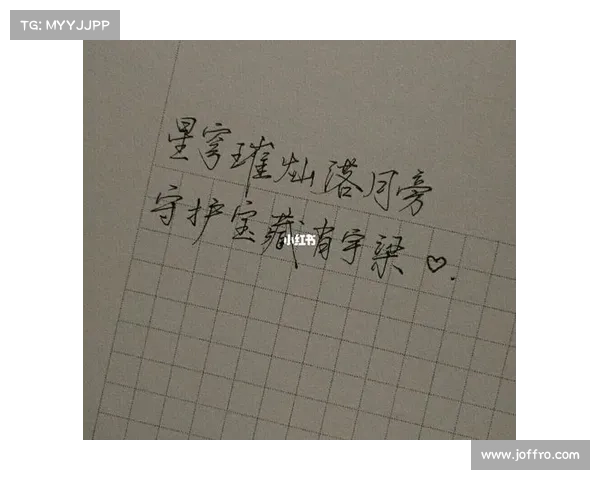 TG: MYYJJPP
星穹璀灿落月旁
守护宝藏有宇梁♡.
小红书
www.joffro.com